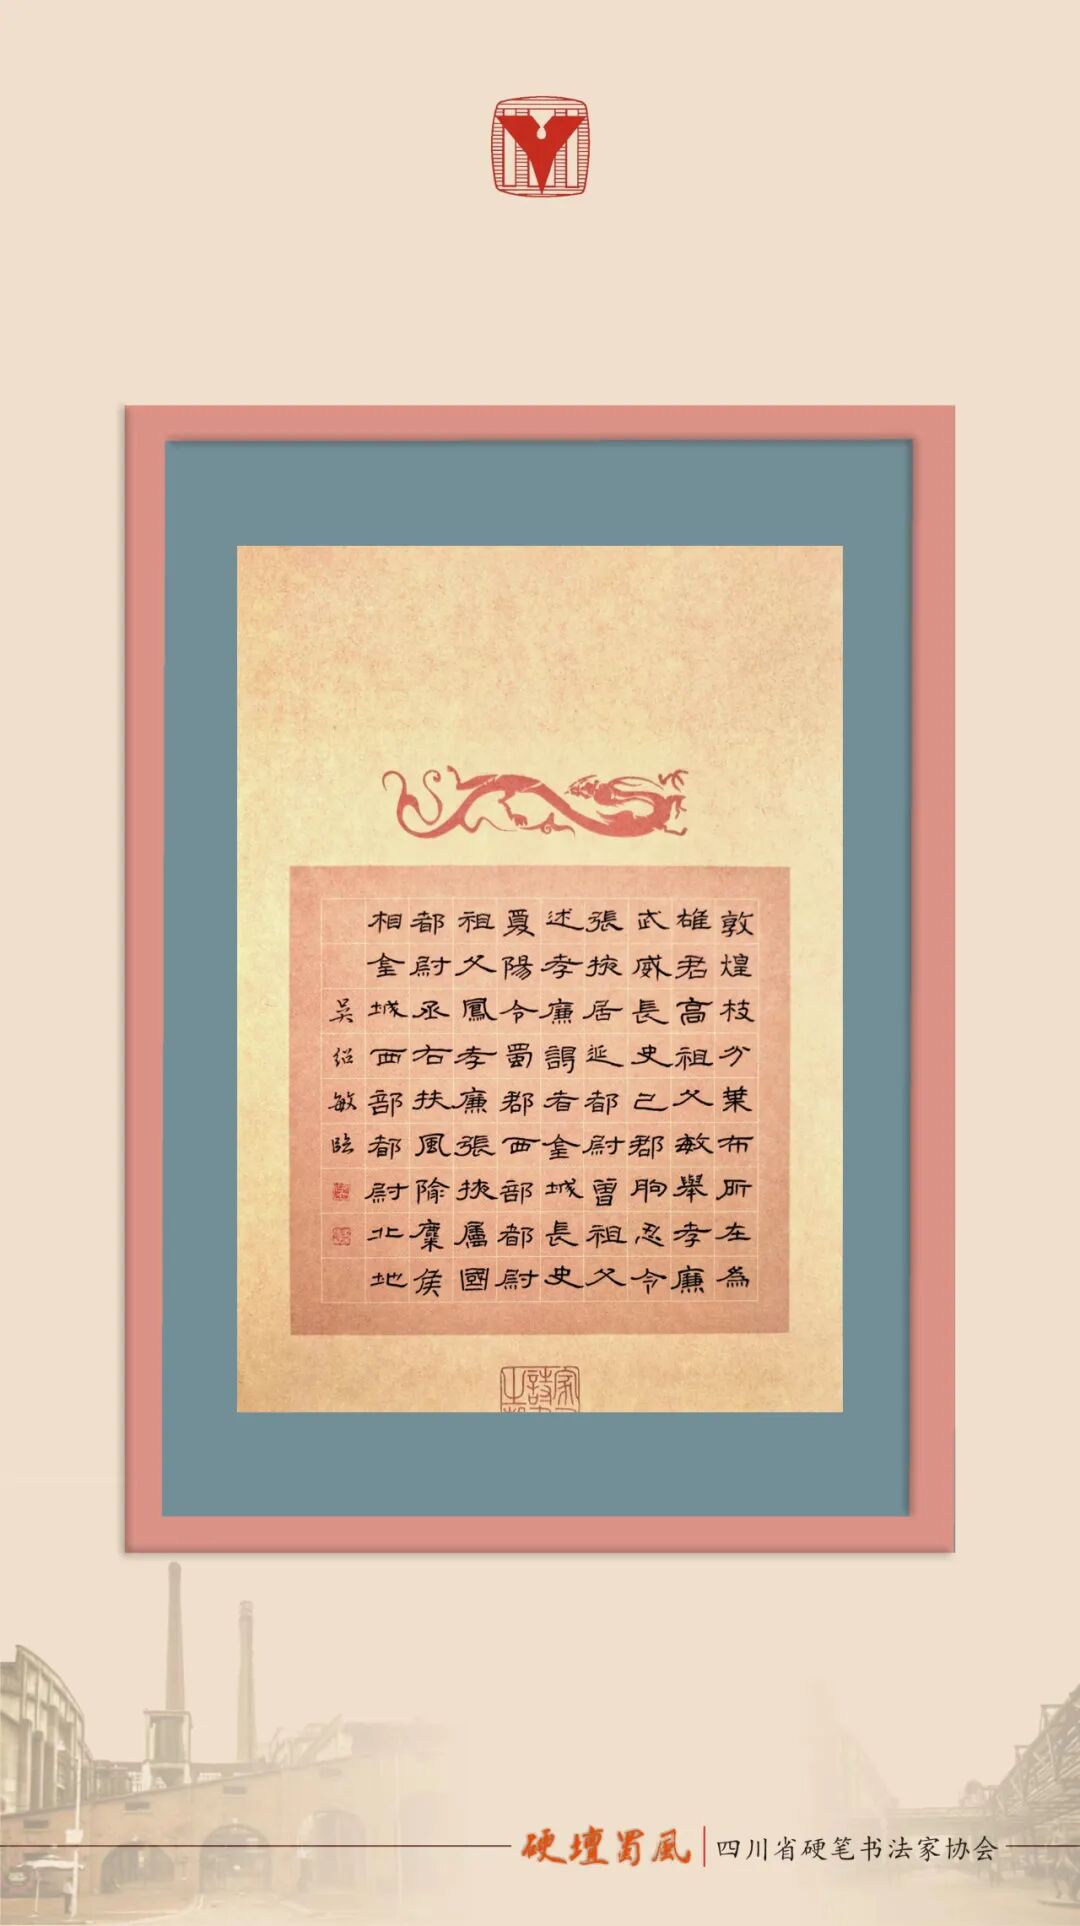 敦煌枝分葉布所左為
雄君高祖父敏舉孝廉
武威長史己郡朐忍令
張掖居延都尉曾祖父
述孝廉謁者金城長史
夏陽令蜀郡西部都尉
祖父鳳孝廉張掖屬國
都尉丞右扶風隃麋侯
相金城西部都尉北地
吴绍敏臨
硬壇蜀風
四川省硬笔书法家协会